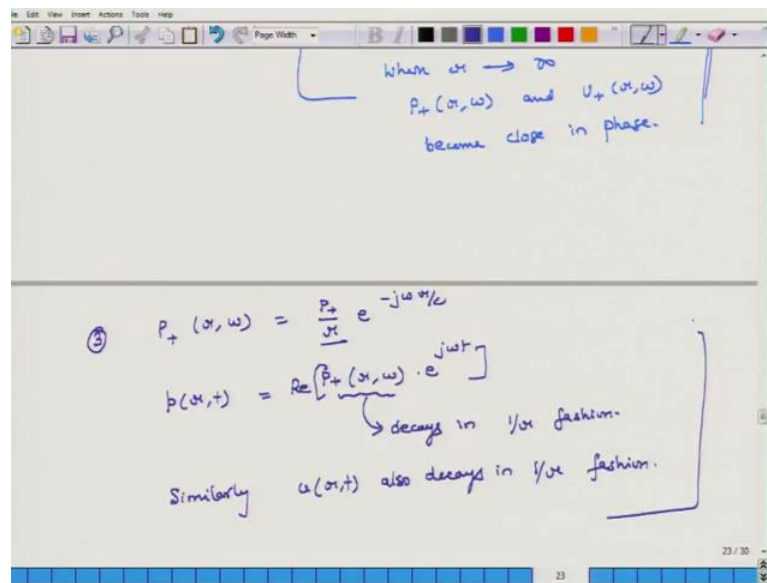 File Edit View Insert Actions Tools Help
Page Width
B I
When r → ∞
P₊(r,ω) and U₊(r,ω)
become close in phase.
③ P₊(r,ω) = P₊/r e^(-jωr/c)
p(r,t) = Re[P₊(r,ω) · e^(jωt)]
decays in 1/r fashion.
Similarly u(r,t) also decays in 1/r fashion.
23 / 30
23